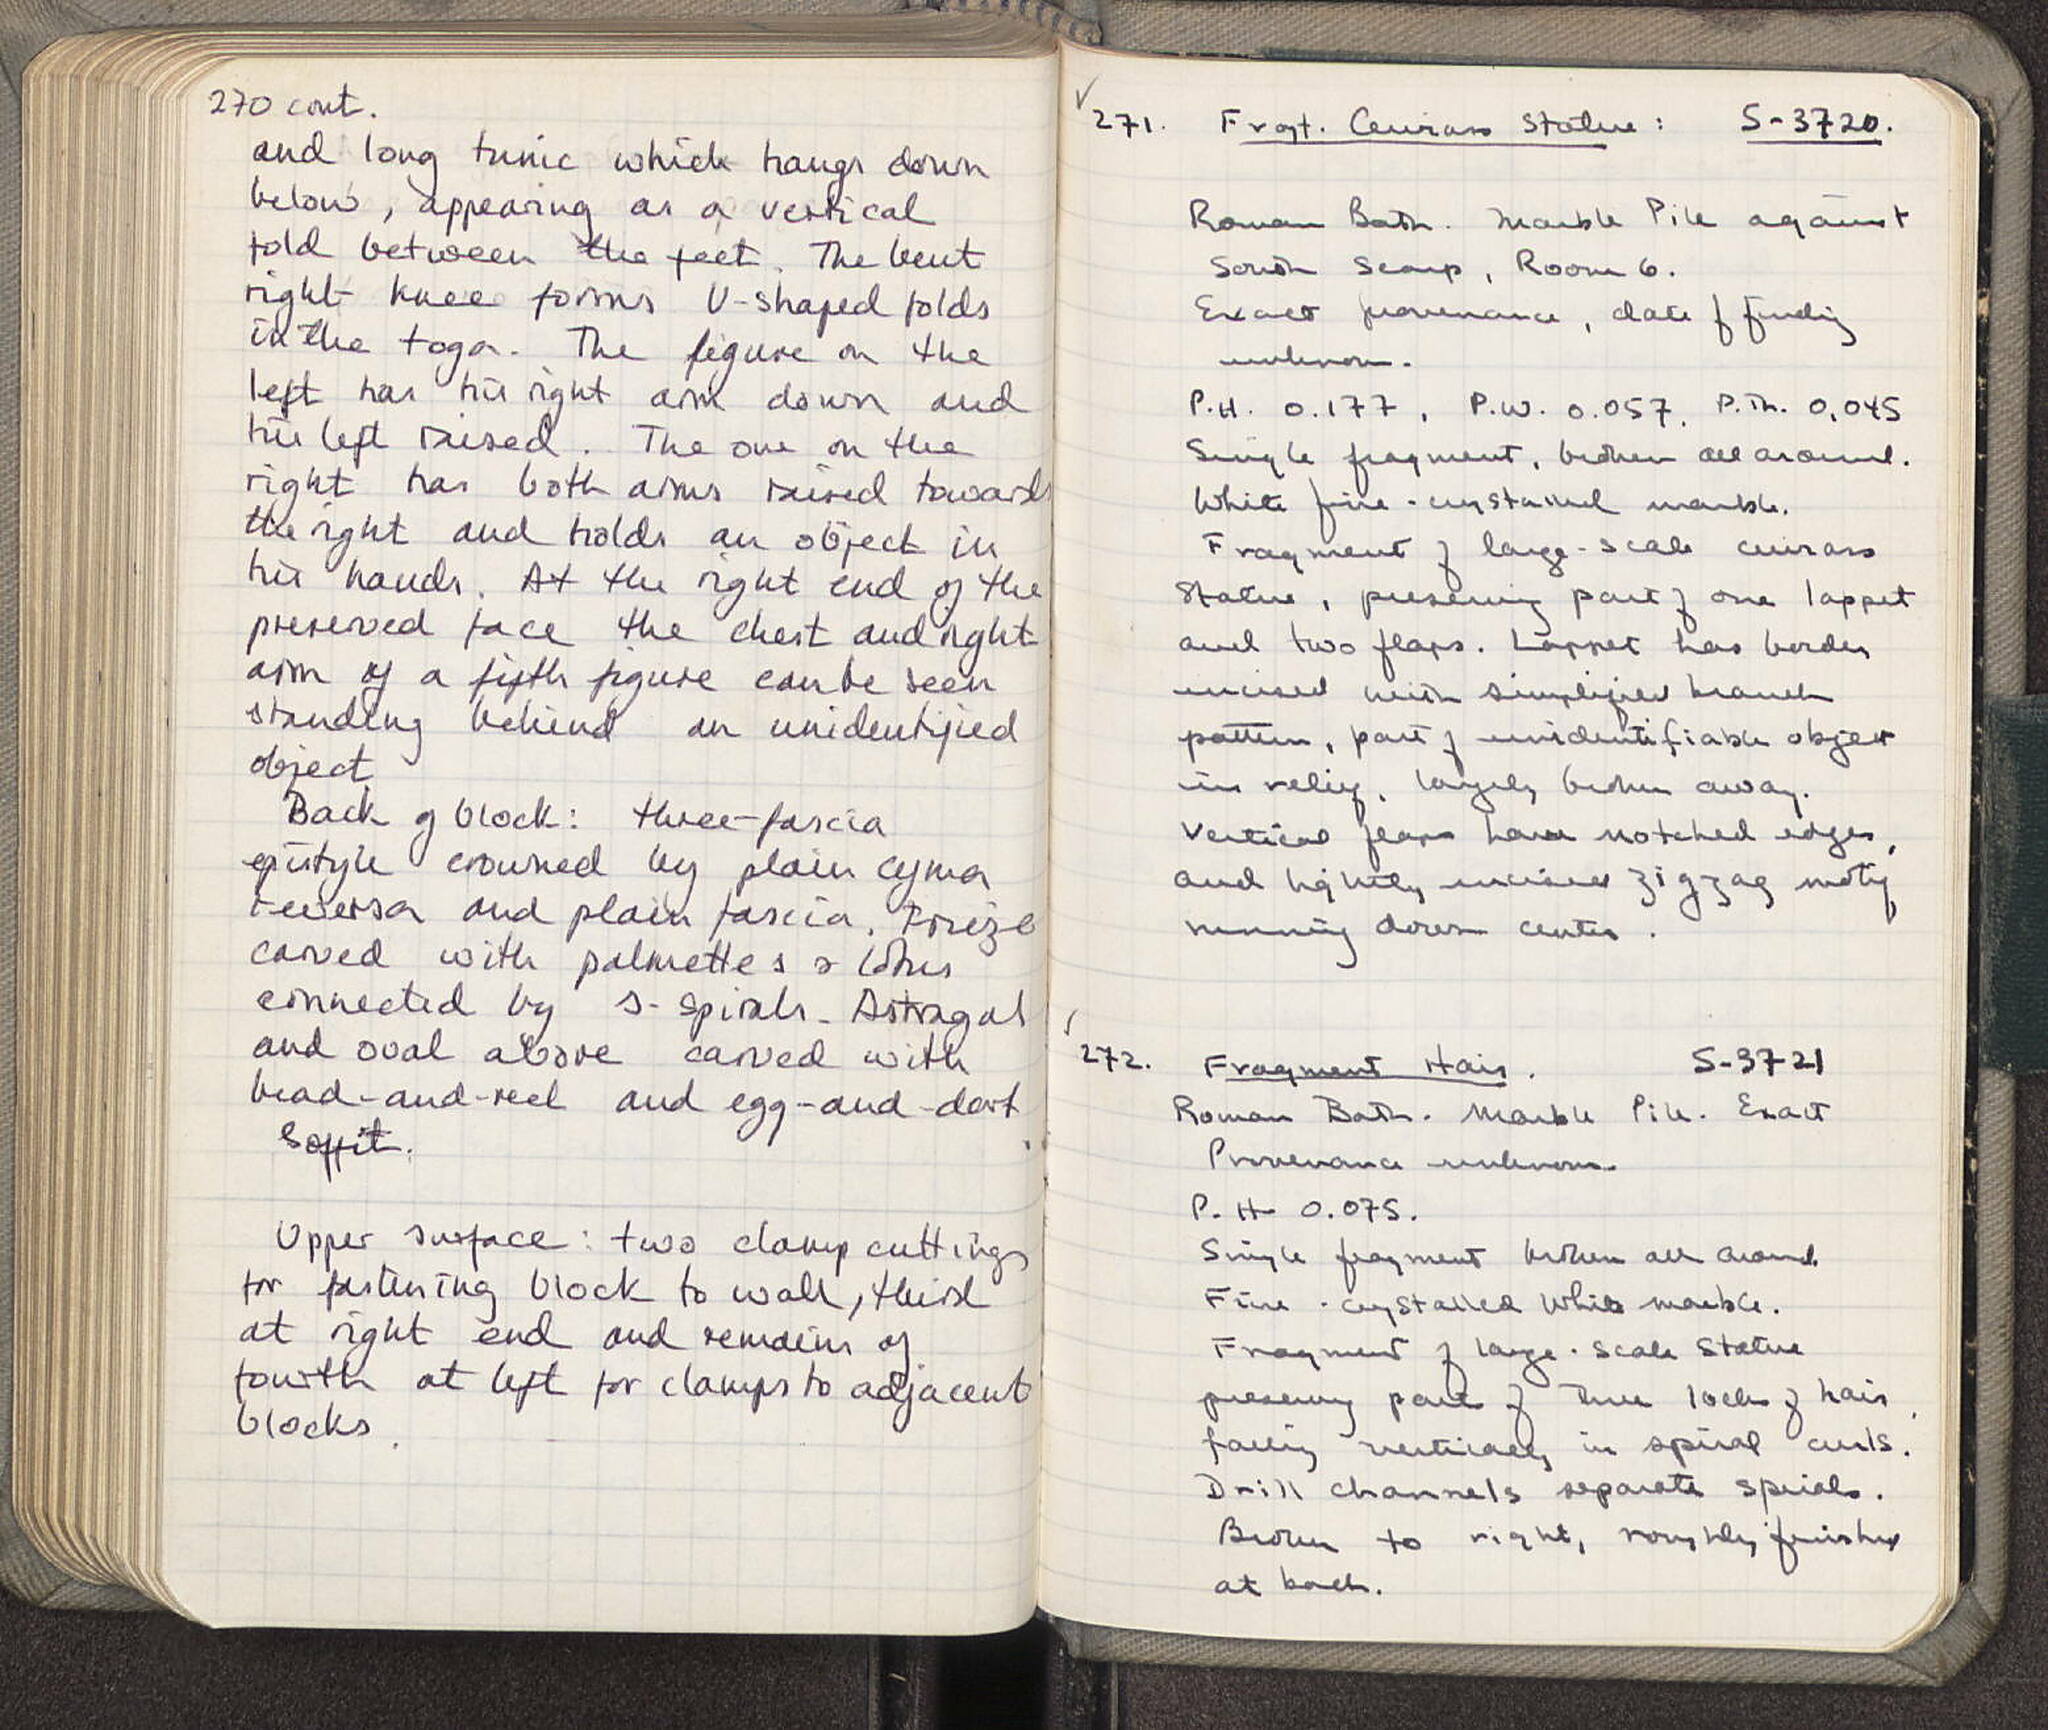 270 cont.
and long tunic which hangs down
below, appearing as a vertical
fold between the feet. The bent
right knee forms U-shaped folds
in the toga. The figure on the
left has his right arm down and
his left raised. The one on the
right has both arms raised towards
the right and holds an object in
his hands. At the right end of the
preserved face the chest and right
arm of a fifth figure can be seen
standing behind an unidentified
object
Back of block: three-fascia
epistyle crowned by plain cyma
reversa and plain fascia. Frieze
carved with palmettes & lotus
connected by S-spirals. Astragal
and oval above carved with
bead-and-reel and egg-and-dart
Soffit.
Upper surface: two clamp cuttings
for fastening block to wall, third
at right end and remains of
fourth at left for clamps to adjacent
blocks.
271. Fragt. Cuirass Statue: S-3720.
Roman Bath. Marble Pile against
South Scarp, Room 6.
Exact provenance, date of finding
unknown.
P.H. 0.177, P.W. 0.057, P.Th. 0,045
Single fragment, broken all around.
White fine-crystalled marble.
Fragment of large-scale cuirass
statue, preserving part of one lappet
and two flaps. Lappet has border
incised with simplified branch
pattern, part of unidentifiable object
in relief, largely broken away.
Vertical flaps have notched edges,
and lightly incised zigzag motif
running down center.
272. Fragment Hair. S-3721
Roman Bath. Marble Pile. Exact
Provenance unknown.
P.H 0.075.
Single fragment broken all around.
Fine-crystalled white marble.
Fragment of large-scale statue
preserving part of three locks of hair
falling vertically in spiral curls.
Drill channels separate spirals.
Broken to right, roughly finished
at back.